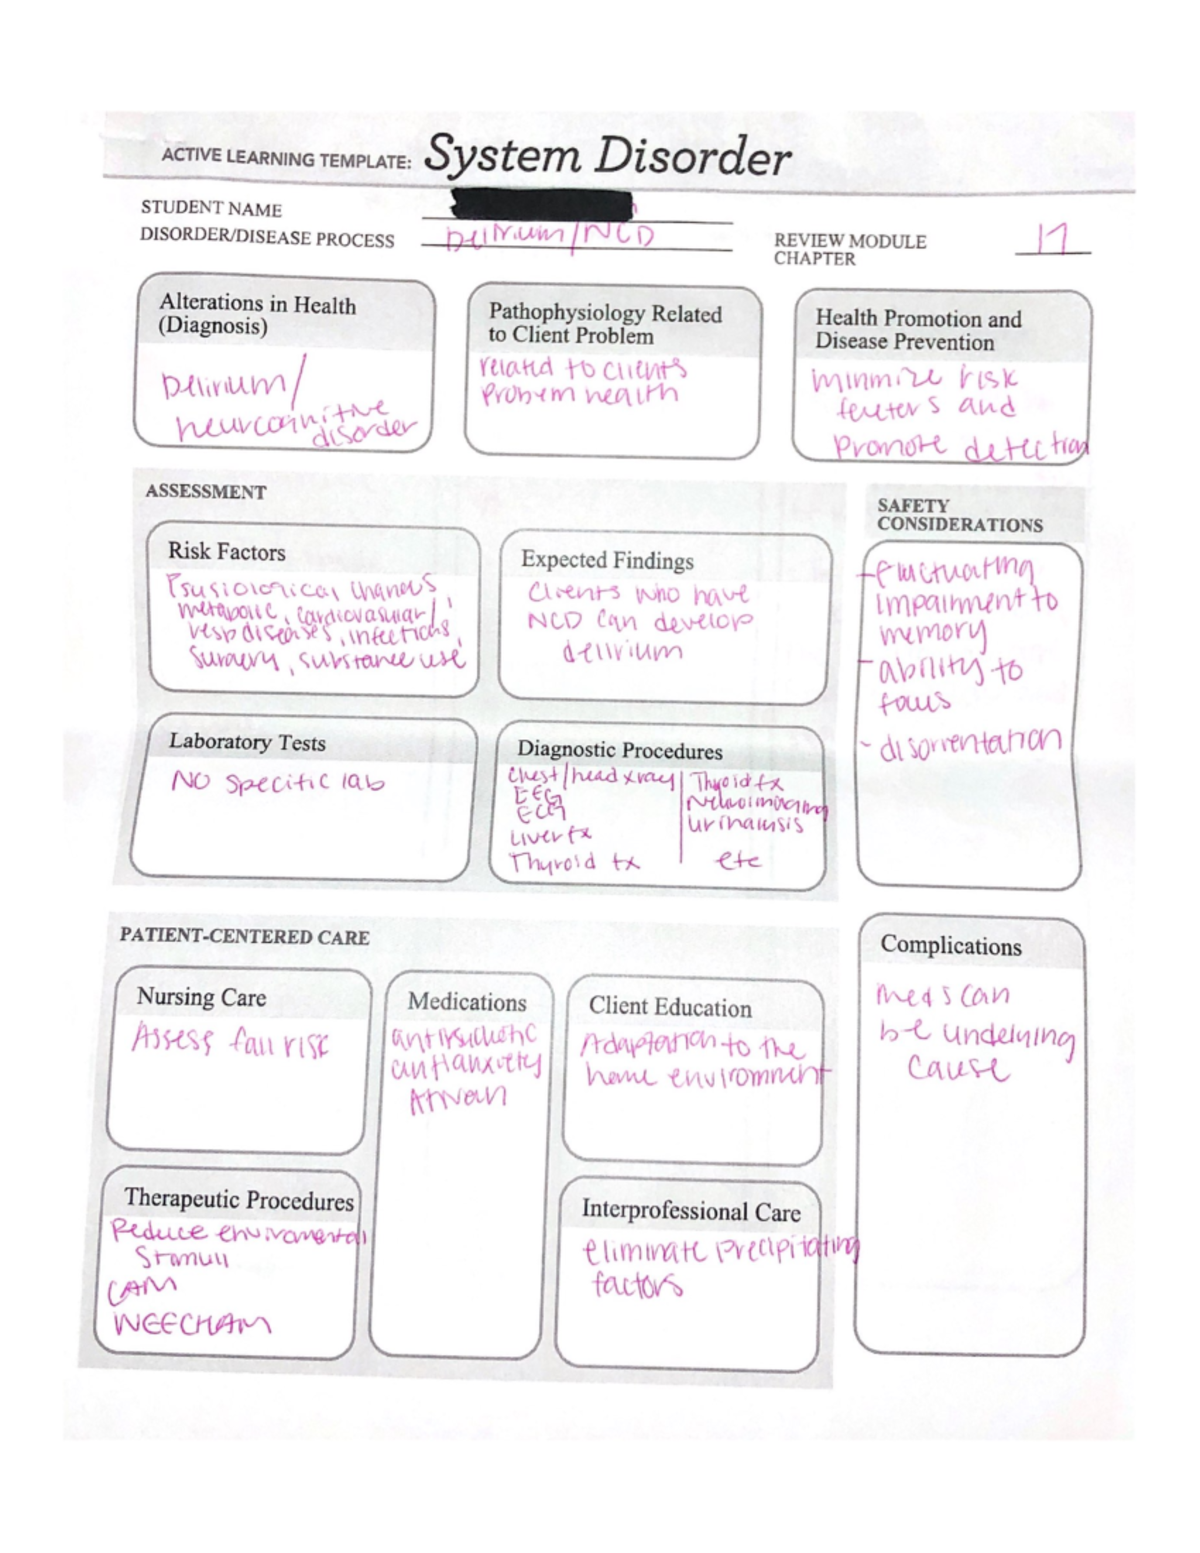 ACTIVE LEARNING TEMPLATE: System Disorder
STUDENT NAME
DISORDER/DISEASE PROCESS Delirium/NCD
REVIEW MODULE
CHAPTER 17
Alterations in Health
(Diagnosis)
Delirium/
neurcognitive
disorder
Pathophysiology Related
to Client Problem
related to clients
problem health
Health Promotion and
Disease Prevention
minimize risk
fcuters and
promote detection
ASSESSMENT
Risk Factors
Psysiological changes,
metabolic, cardiovascular/
resp diseases, infections,
surgery, substance use
Expected Findings
Clients who have
NCD can develop
delirium
Laboratory Tests
NO specific lab
Diagnostic Procedures
Chest/head xray
EEG
ECG
Liver tx
Thyroid tx
Thyroid tx
Neuroimaging
urinalysis
etc
SAFETY
CONSIDERATIONS
-fluctuating
impairment to
memory
- ability to
focus
- disorrentation
PATIENT-CENTERED CARE
Nursing Care
Assess fall risk
Medications
antipsychotic
antianxiety
Ativan
Client Education
Adaptation to the
home enviromment
Therapeutic Procedures
Reduce enviromental
stimuli
CAM
NEECHAM
Interprofessional Care
eliminate precipitating
factors
Complications
meds can
be underlying
cause